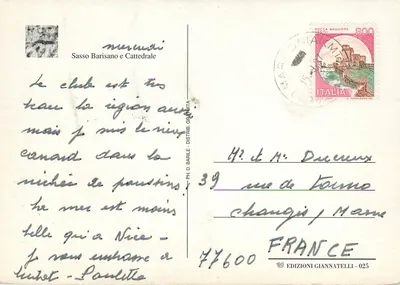 mercredi
Sasso Barisano e Cattedrale
Le club est très
beau la région aussi
mais je suis le vieux
canard dans la
nichée de poussins!
La mer est moins
belle qu'à Nice -
je vous embrasse à
bientôt - Paulette
PH: D. BARILE - DISTRIB.
ROCCA MAGGIORE 600
ITALIA
MARINA
Mr et Me
39 rue de
Changis / Marne
77600 FRANCE
EDIZIONI GIANNATELLI - 025